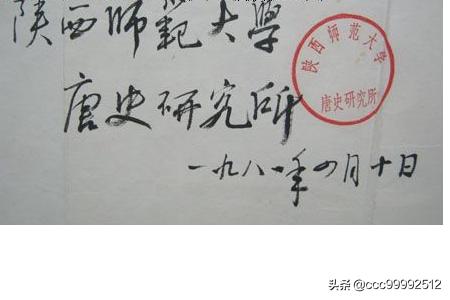 陕西师範大學
唐史研究所
陕西师范大学
唐史研究所
一九八一年四月十日
头条 @ccc99992512